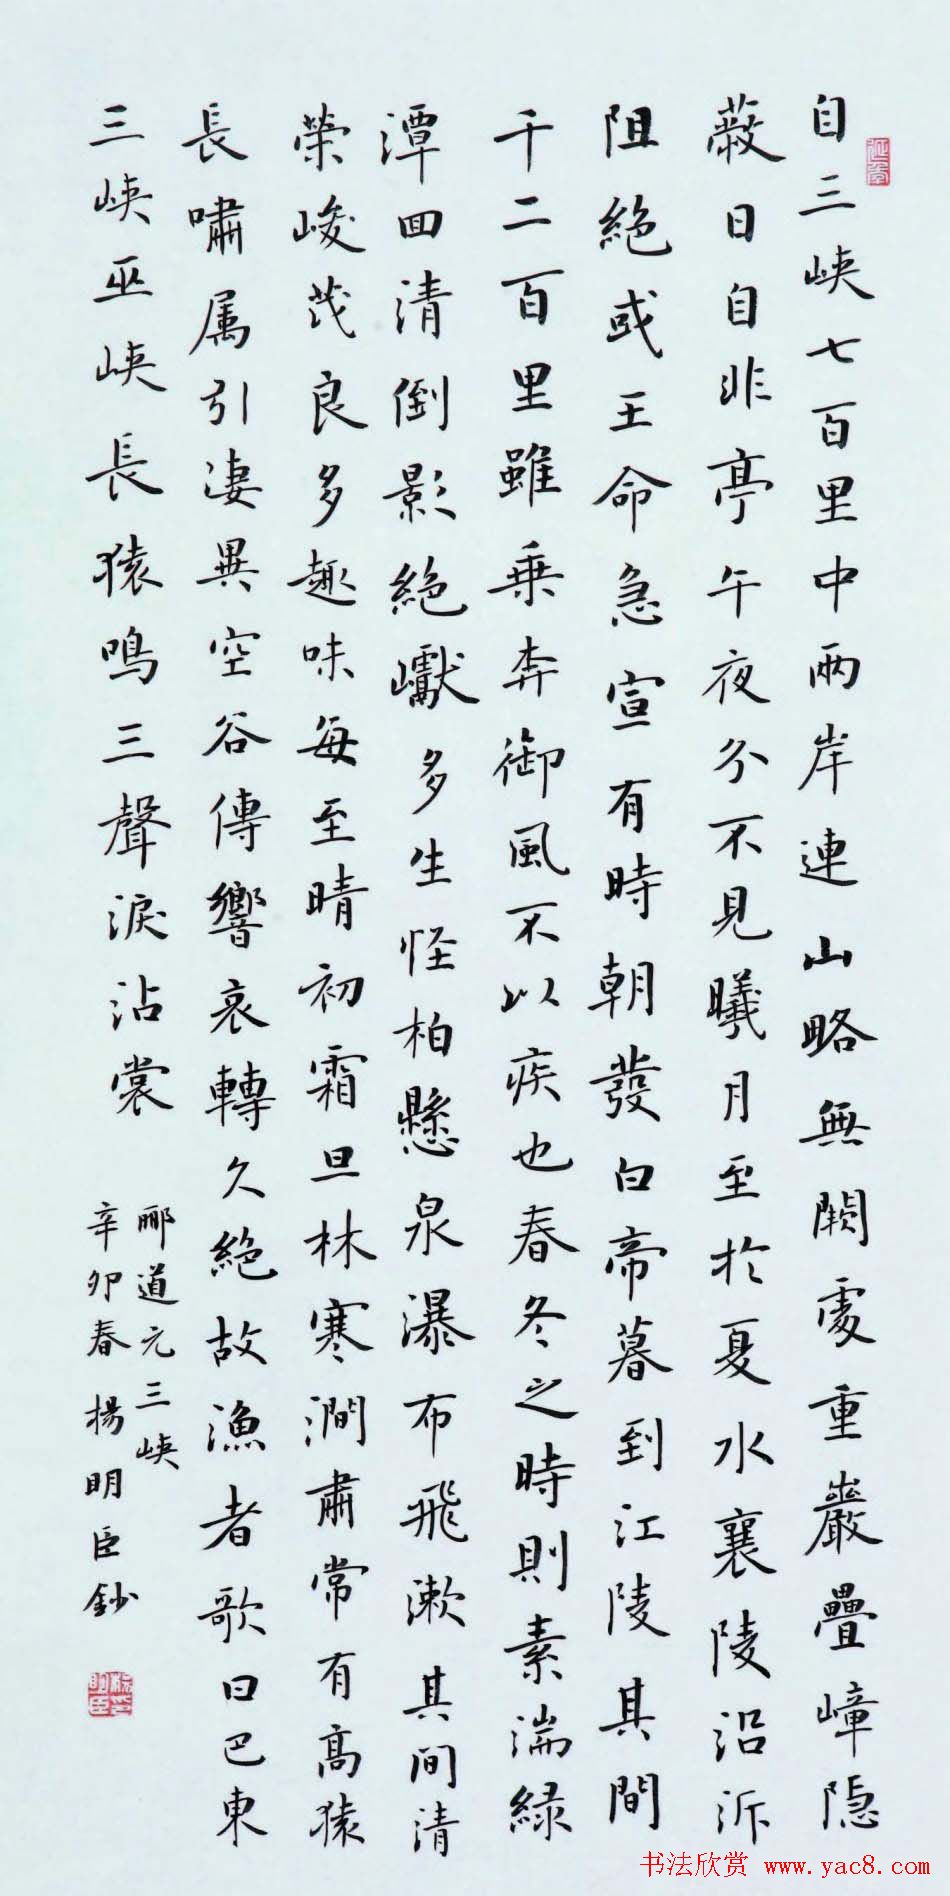 自三峡七百里中兩岸連山略無闕處重巖疊嶂隐
蔽日自非亭午夜分不見曦月至於夏水襄陵沿泝
阻絕或王命急宣有時朝發白帝暮到江陵其間
千二百里雖乗奔御風不以疾也春冬之時則素湍緑
潭回清倒影絕巘多生怪柏懸泉瀑布飛漱其间清
榮峻茂良多趣味每至晴初霜旦林寒澗肅常有高猿
長嘯属引凄異空谷傳響哀轉久絕故漁者歌曰巴東
三峡巫峡長猿鳴三聲淚沾裳
酈道元三峡
辛卯春楊明臣鈔
书法欣赏 www.yac8.com